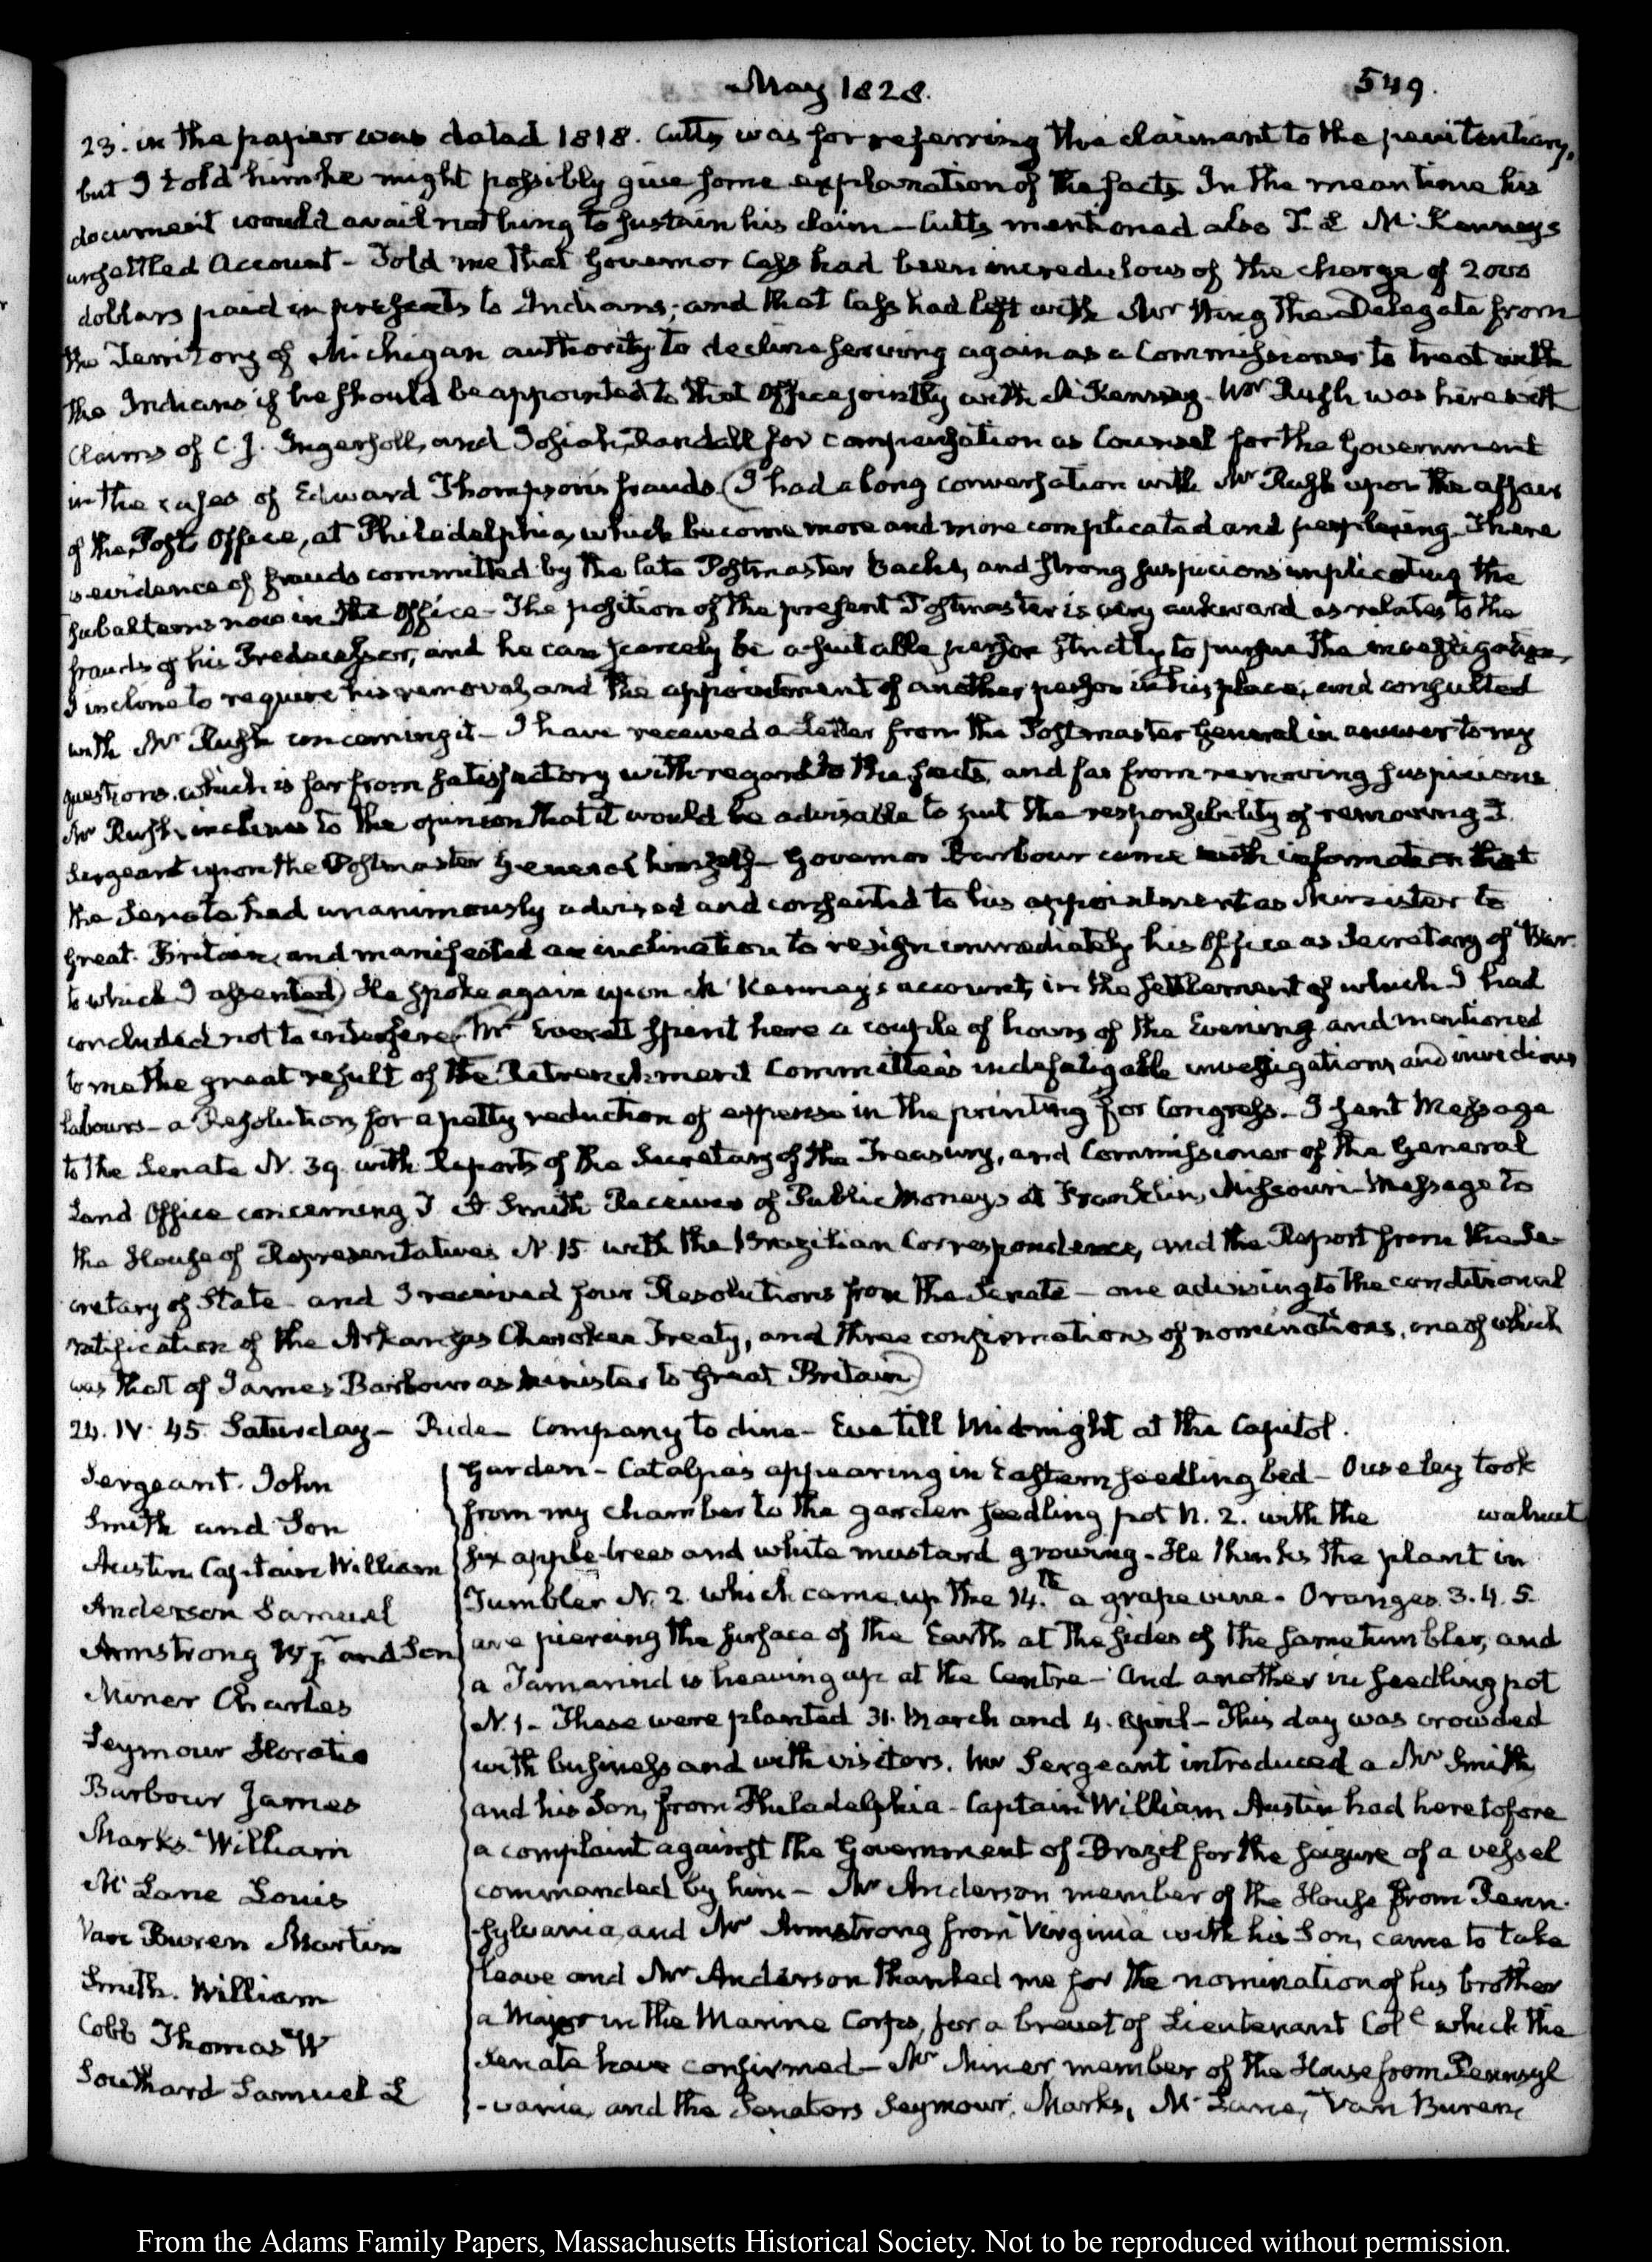 May 1828.
549.
23. in the papers was dated 1818. Cutts was for referring the claimant to the penitentiary,
but I told him he might possibly give some explanation of the facts. In the mean time his
document would avail nothing to sustain his claim — Cutts mentioned also T. L. McKenney's
unsettled Account — Told me that Governor Cass had been incredulous of the charge of 2000
dollars paid in presents to Indians; and that Cass had left with Mr Wing the Delegate from
the Territory of Michigan authority to decline serving again as a Commissioner to treat with
the Indians if he should be appointed to that Office jointly with McKenney. Mr Rush was here with
Claims of C. J. Ingersoll, and Josiah Randall for compensation as Counsel for the Government
in the cases of Edward Thompson's frauds. (I had a long conversation with Mr Rush upon the affairs
of the Post Office, at Philadelphia, which become more and more complicated and perplexing. There
is evidence of frauds committed by the late Postmaster Bache, and strong suspicions implicating the
subalterns now in the Office — The position of the present Postmaster is very awkward as relates to the
frauds of his Predecessor, and he can scarcely be a suitable person strictly to pursue the investigation,
I incline to require his removal, and the appointment of another person in his place, and consulted
with Mr Rush concerning it — I have received a Letter from the Postmaster General in answer to my
questions, which is far from satisfactory with regard to the facts, and far from removing suspicions
Mr Rush inclines to the opinion that it would be advisable to put the responsibility of removing T.
Sergeant upon the Postmaster General himself — Governor Barbour came with information that
the Senate had unanimously advised and consented to his appointment as Minister to
Great Britain, and manifested an inclination to resign immediately his Office as Secretary of War.
to which I assented) He spoke again upon McKenney's account, in the settlement of which I had
concluded not to interfere. (Mr Everett spent here a couple of hours of the Evening and mentioned
to me the great result of the Retrenchment Committee's indefatigable investigations, and invidious
labours — a Resolution for a petty reduction of expense in the printing for Congress. — I sent Message
to the Senate N. 39. with Reports of the Secretary of the Treasury, and Commissioner of the General
Land Office concerning T A Smith Receiver of Public Moneys at Franklin, Missouri — Message to
the House of Representatives N. 15 with the Brazilian Correspondence, and the Report from the Se-
cretary of State — and I received four Resolutions from the Senate — one advising to the conditional
ratification of the Arkansas Cherokee Treaty, and three confirmations of nominations, one of which
was that of James Barbour as Minister to Great Britain)
24. IV. 45. Saturday — Ride — Company to dine — Eve till Midnight at the Capitol.
Sergeant. John
Smith and Son
Austin Captain William
Anderson Samuel
Armstrong Wm and Son
Miner Charles
Seymour Horatio
Barbour James
Marks William
McLane Louis
Van Buren Martin
Smith. William
Cobb Thomas W
Southard Samuel L
Garden — Catalpas appearing in Eastern seedling bed — Ouseley took
from my chamber to the garden seedling pot N. 2. with the walnut
six apple-trees and white mustard growing. He thinks the plant in
Tumbler N. 2. which came up the 14.th a grape vine. Oranges 3. 4. 5.
are piercing the surface of the Earth at the sides of the same tumbler, and
a Tamarind is heaving up at the Centre — And another in seedling pot
N. 1 — These were planted 31. March and 4. April — This day was crowded
with business and with visitors. Mr Sergeant introduced a Mr Smith
and his Son, from Philadelphia — Captain William Austin had heretofore
a complaint against the Government of Brazil for the seizure of a vessel
commanded by him — Mr Anderson member of the House from Penn-
-sylvania, and Mr Armstrong from Virginia with his Son, came to take
leave and Mr Anderson thanked me for the nomination of his brother
a Major in the Marine Corps, for a brevet of Lieutenant Col.l which the
Senate have confirmed — Mr Miner, member of the House from Pennsyl
-vania, and the Senators Seymour, Marks, McLane, Van Buren,
From the Adams Family Papers, Massachusetts Historical Society. Not to be reproduced without permission.